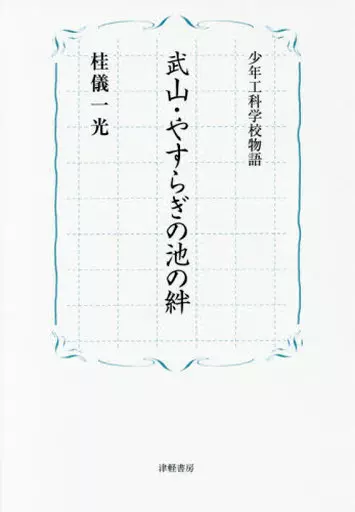 少年工科学校物語
武山・やすらぎの池の絆
桂儀一光
津軽書房